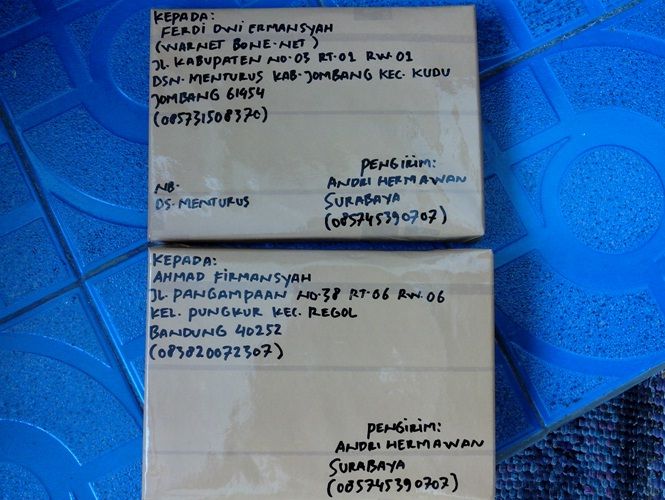 KEPADA:
FERDI DWI ERMANSYAH
(WARNET BONE-NET)
JL. KABUPATEN NO.03 RT.01 RW.01
DSN. MENTURUS KAB. JOMBANG KEC. KUDU
JOMBANG 61954
(085731508370)
PENGIRIM:
ANDRI HERMAWAN
SURABAYA
(085745390707)
NB.
DS. MENTURUS
KEPADA:
AHMAD FIRMANSYAH
JL. PANGAMPAAN NO.38 RT.06 RW.06
KEL. PUNGKUR KEC. REGOL
BANDUNG 40252
(083820072307)
PENGIRIM:
ANDRI HERMAWAN
SURABAYA
(085745390707)